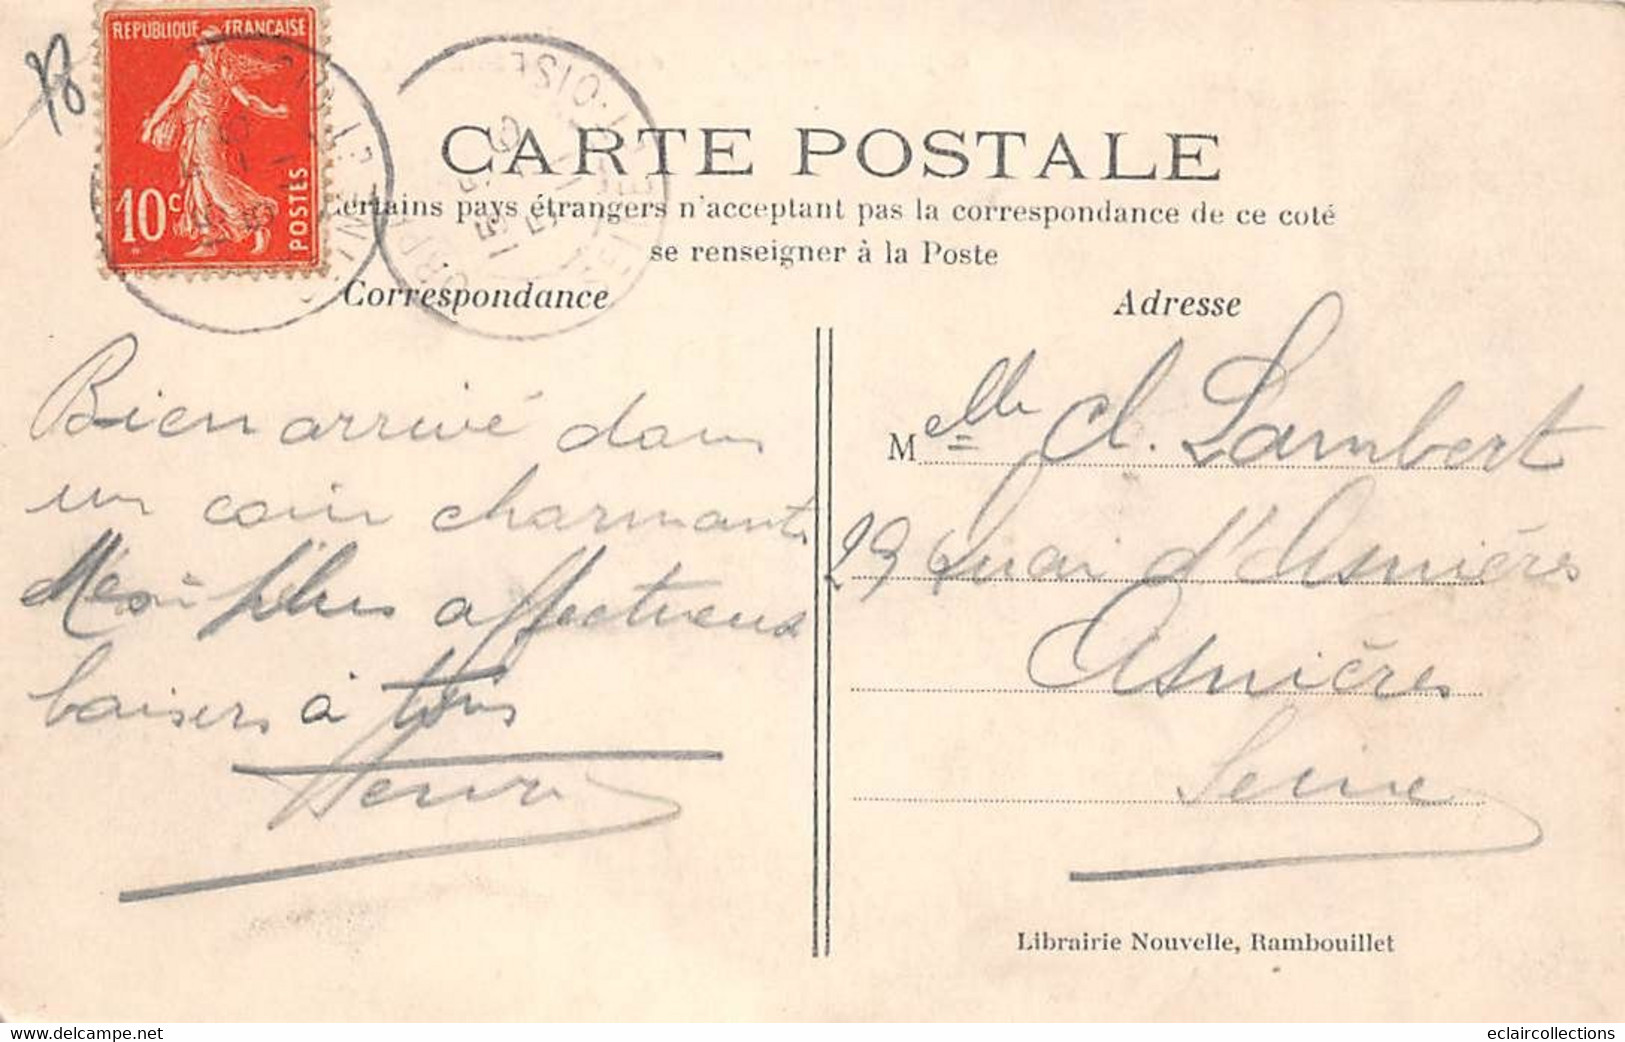 18
RÉPUBLIQUE FRANÇAISE
10c
POSTES
CARTE POSTALE
Certains pays étrangers n'acceptant pas la correspondance de ce coté
se renseigner à la Poste
Correspondance
Adresse
Bien arrivé dans
un coin charmant
Mes plus affectueux
baisers à tous
Henri
Melle Cl. Lambert
29 Quai d'Asnières
Asnières
Seine
Librairie Nouvelle, Rambouillet
delcampe.net
eclaircollections